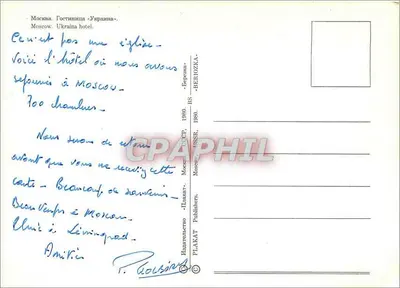 Москва. Гостиница «Украина».
Moscow. Ukraina hotel.
Ce n'est pas une église -
Voici l'hôtel où nous avons
séjourné à Moscou -
700 chambres -
Nous serons de retour
avant que vous ne receviez cette
carte - Beaucoup de souvenirs -
Beau temps à Moscou
Pluie à Léningrad -
Amitiés
P.
CPARAMA
CPARPHIL
Издательство «Плакат». Москва. 1980. «Березка»
PLAKAT Publishers. 1980. BERIOZKA